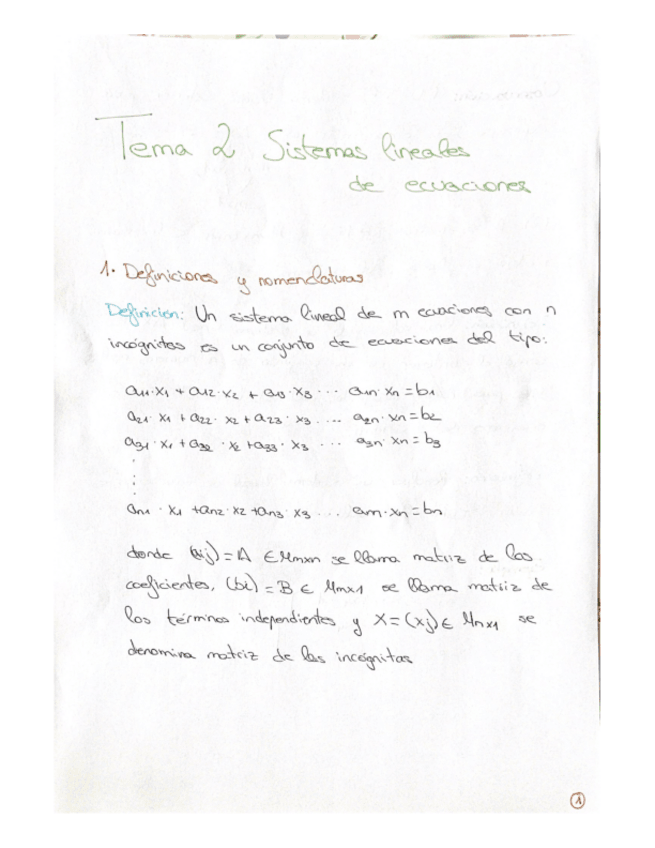 Tema 2 Sistemas lineales
de ecuaciones
1. Definiciones y nomenclaturas
Definición: Un sistema lineal de m ecuaciones con n
incógnitas es un conjunto de ecuaciones del tipo:
a11·x1 + a12·x2 + a13·x3 ... a1n·xn = b1
a21·x1 + a22·x2 + a23·x3 .... a2n·xn = b2
a31·x1 + a32·x2 + a33·x3 ... a3n·xn = b3
an1·x1 + an2·x2 + an3·x3 ... ann·xn = bn
donde (aij) = A ∈ Mmxn se llama matriz de los
coeficientes, (bi) = B ∈ Mmx1 se llama matriz de
los términos independientes y X = (xj) ∈ Mnx1 se
denomina matriz de las incógnitas
1